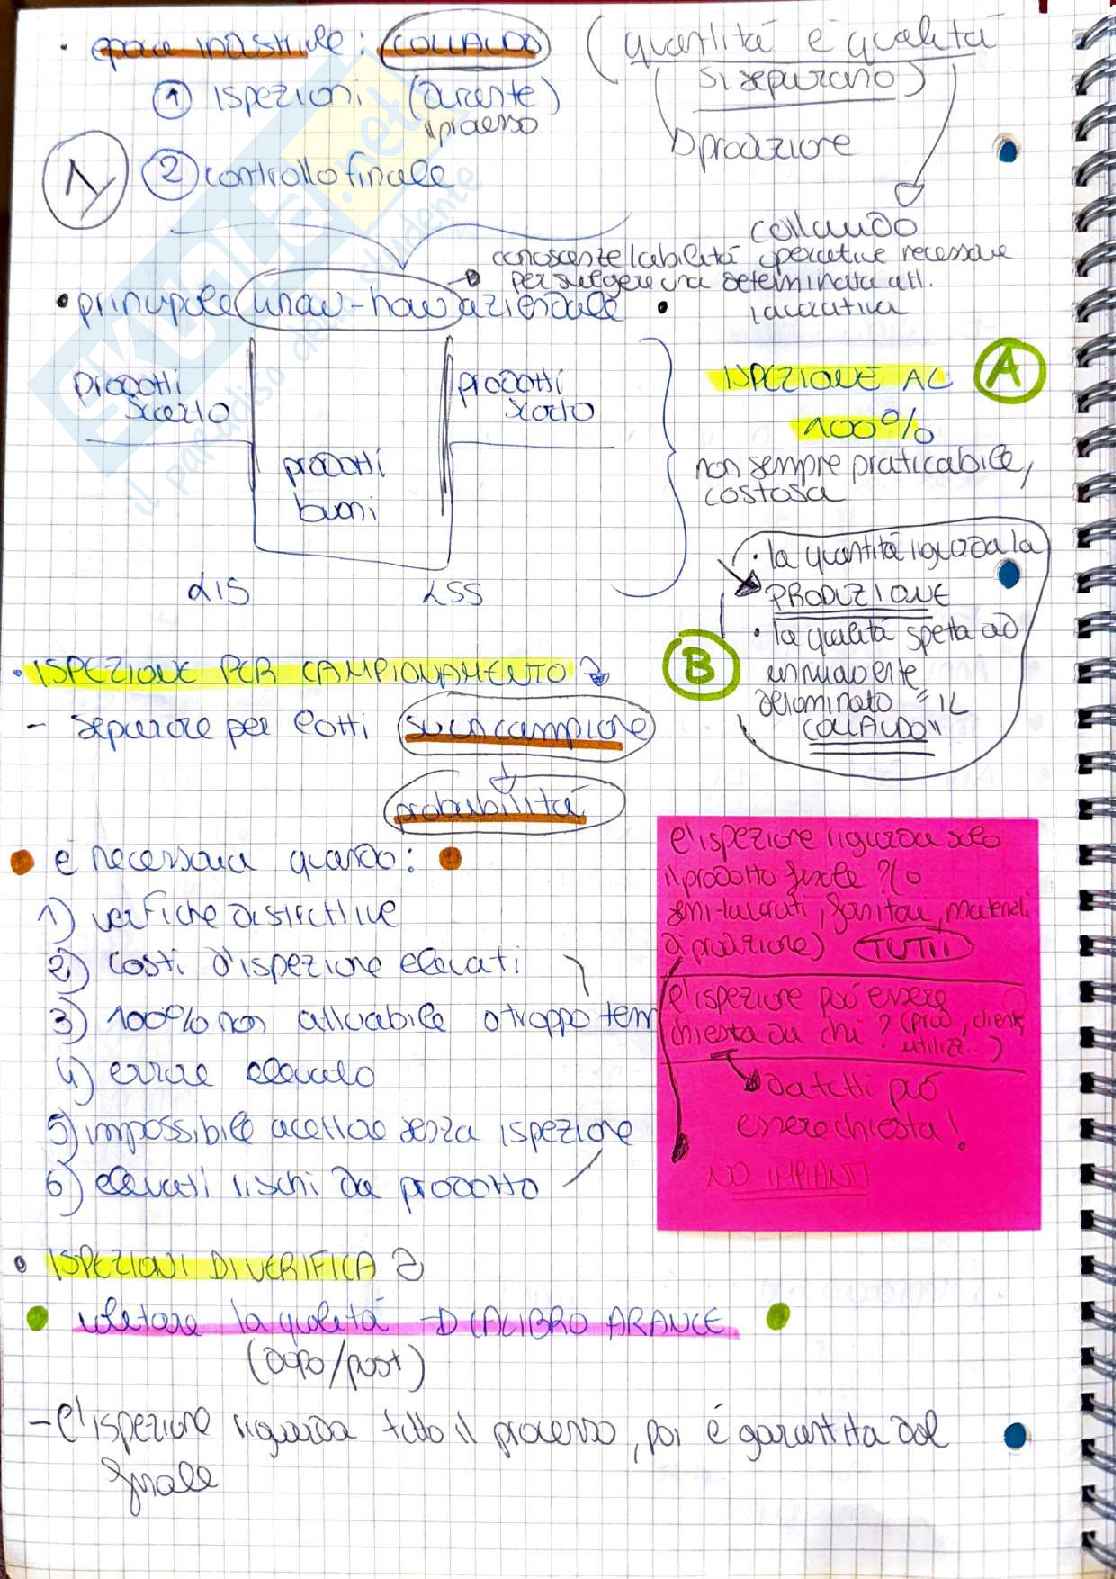 • epoca industriale: COLLAUDO (quantità e qualità
si separano)
① ispezioni (durante)
il processo
produzione
1
② controllo finale
collaudo
conoscenze/abilità operative necessarie
per svolgere una determinata att.
lavorativa
• principale know-how aziendale •
prodotti
scarto
prodotti
scarto
prodotti
buoni
LIS
LSS
ISPEZIONE AL A
100%
non sempre praticabile,
costosa
• la quantità riguarda la
PRODUZIONE
• la qualità spetta ad
un nuovo ente
denominato "IL
COLLAUDO"
B
• ISPEZIONE PER CAMPIONAMENTO
- separare per lotti su un campione
probabilità
è necessaria quando:
1) verifiche distruttive
2) costi d'ispezione elevati
3) 100% non attuabile o troppo tem
4) errore elevato
5) impossibile accettare senza ispezione
6) elevati rischi da prodotto
l'ispezione riguarda solo
il prodotto finale? (o
semi-lavorati, fornitori, materiali
di produzione) TUTTI
l'ispezione può essere
chiesta da chi? (prod, cliente,
utilizz...)
da tutti può
essere chiesta!
NO IMPIANTI
• ISPEZIONI DI VERIFICA
valutare la qualità → CALIBRO ARANCE
(dopo/post)
- l'ispezione riguarda tutto il processo, poi è garantita dal
finale
SKUOLA.net
il paradiso dello studente